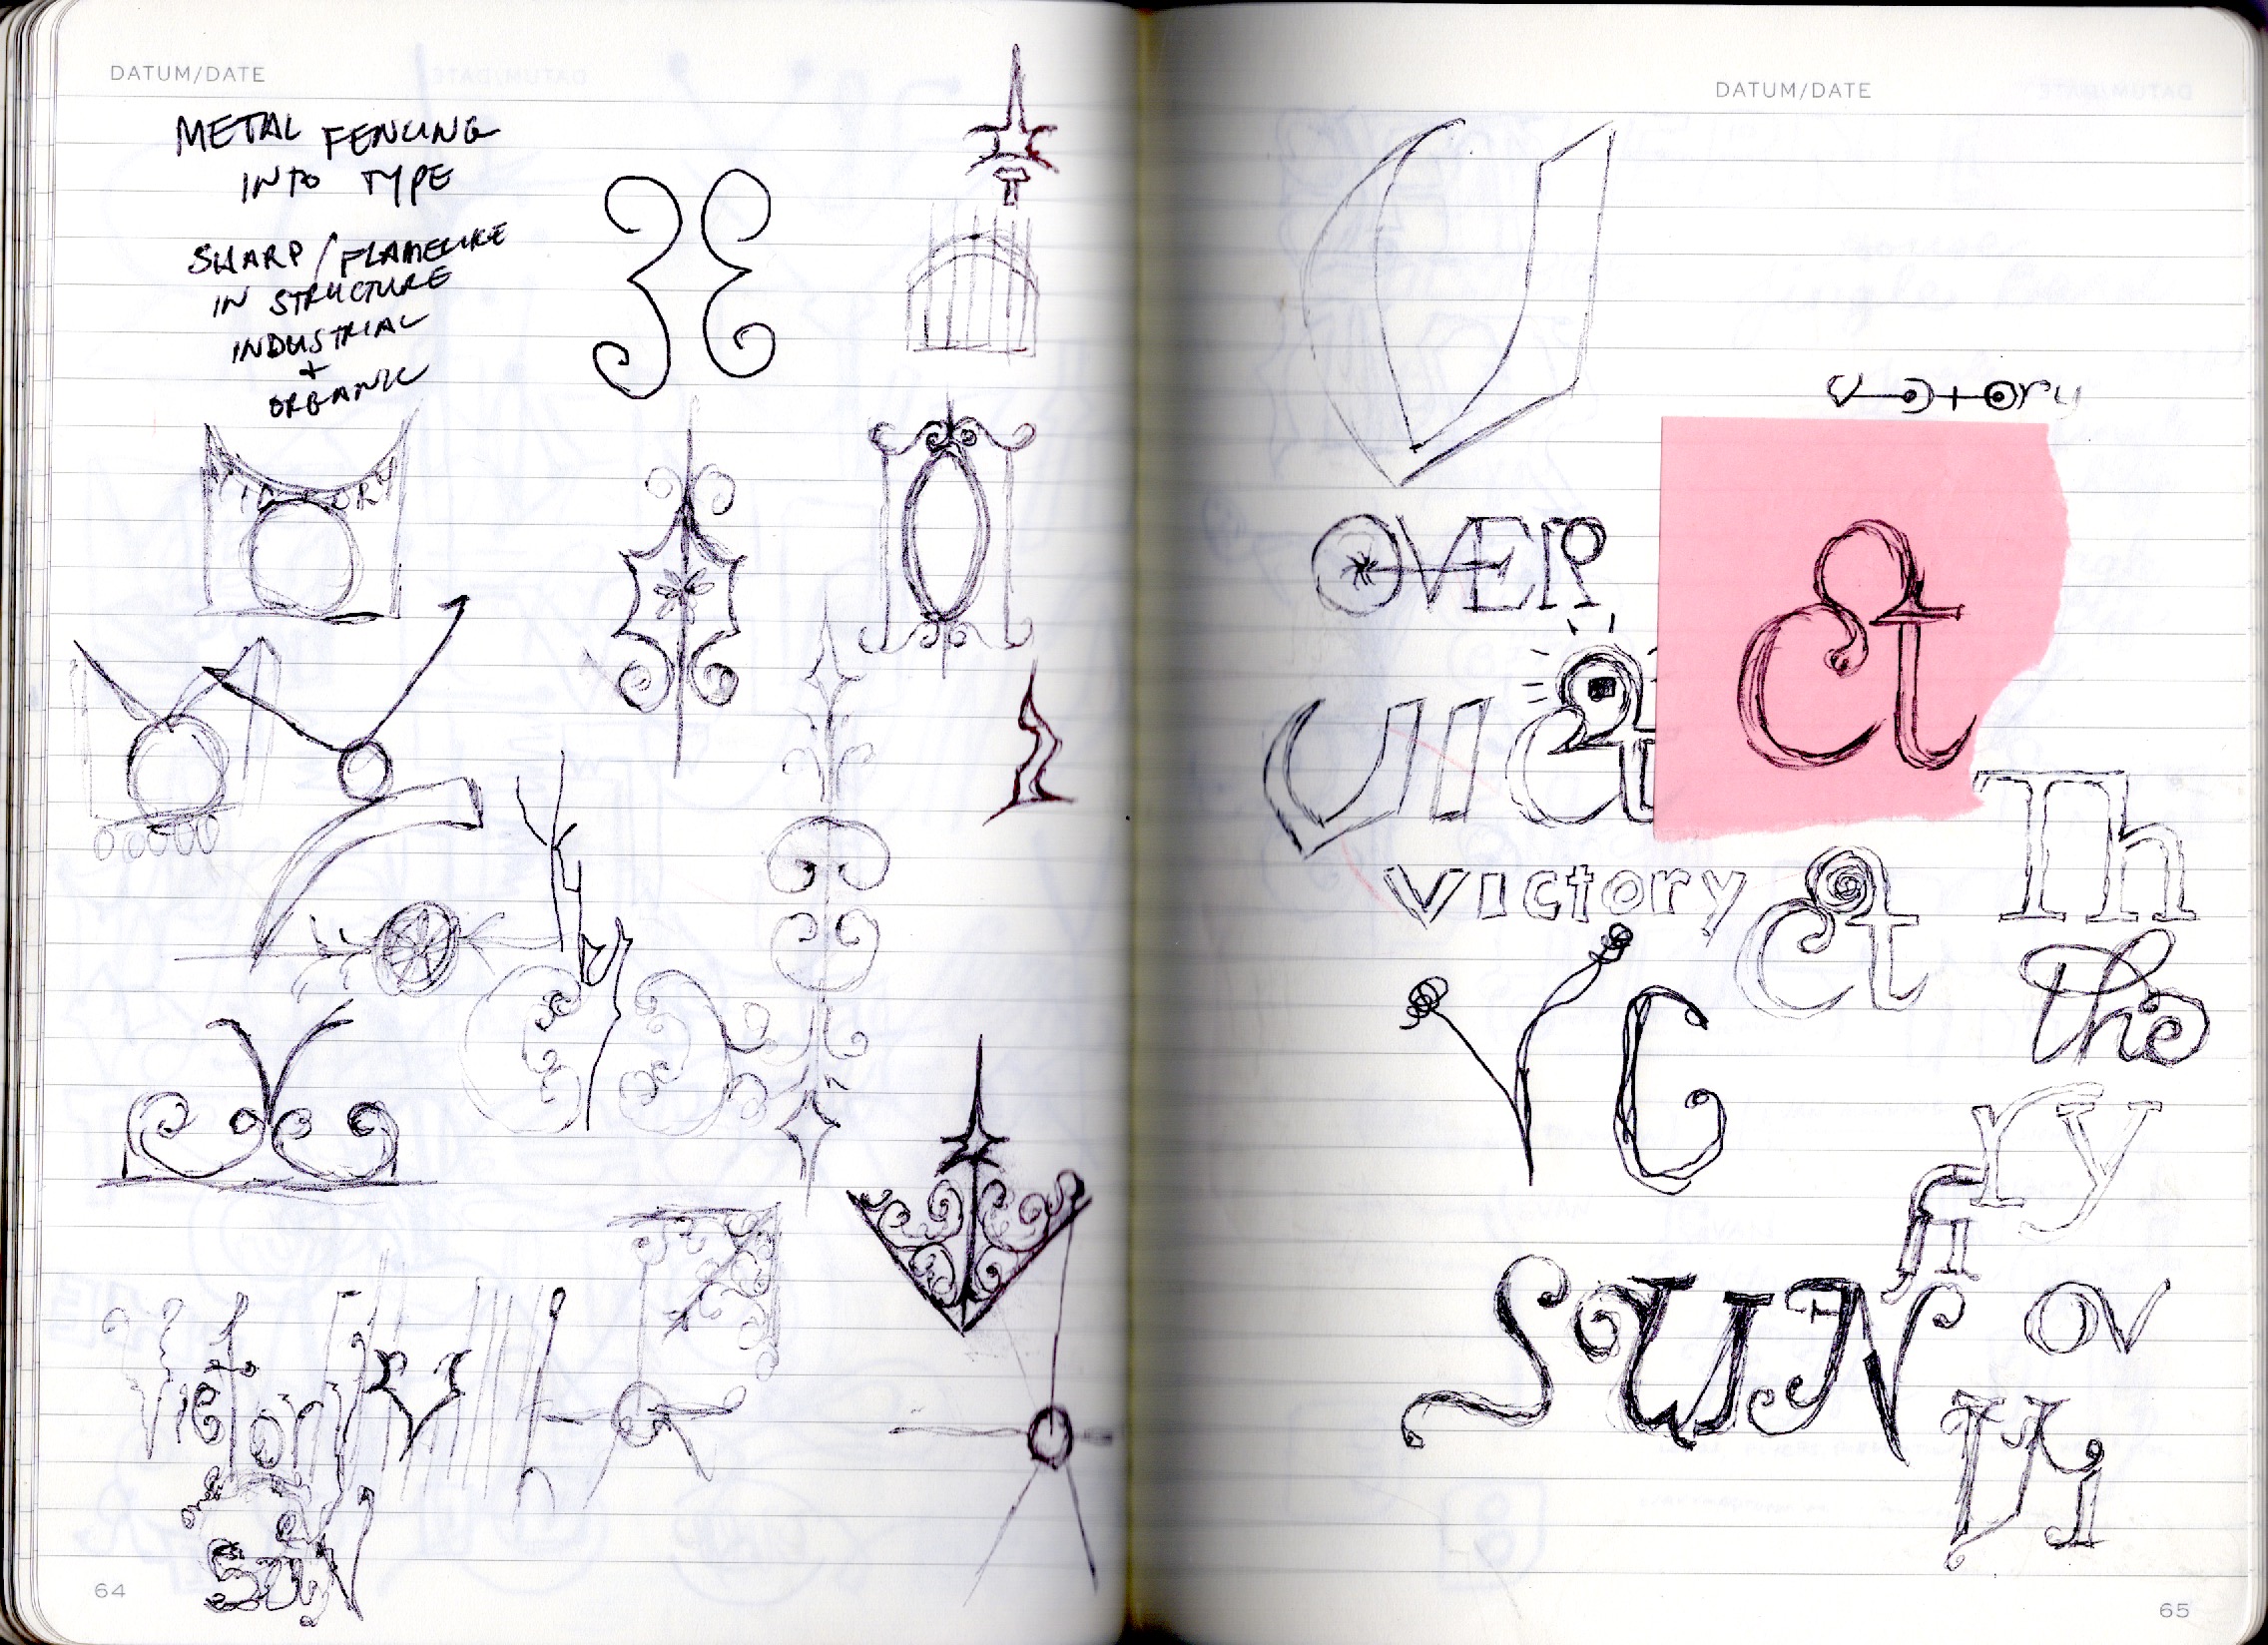 DATUM/DATE
METAL FENCING
INTO TYPE
SHARP/FLAMELIKE
IN STRUCTURE
INDUSTRIAL
+
ORGANIC
VICTORY
Victory
SUN
64
DATUM/DATE
victory
OVER
ct
VICt
Th
victory
ct
the
V C
ry
ri
SUN
OV
Vi
65